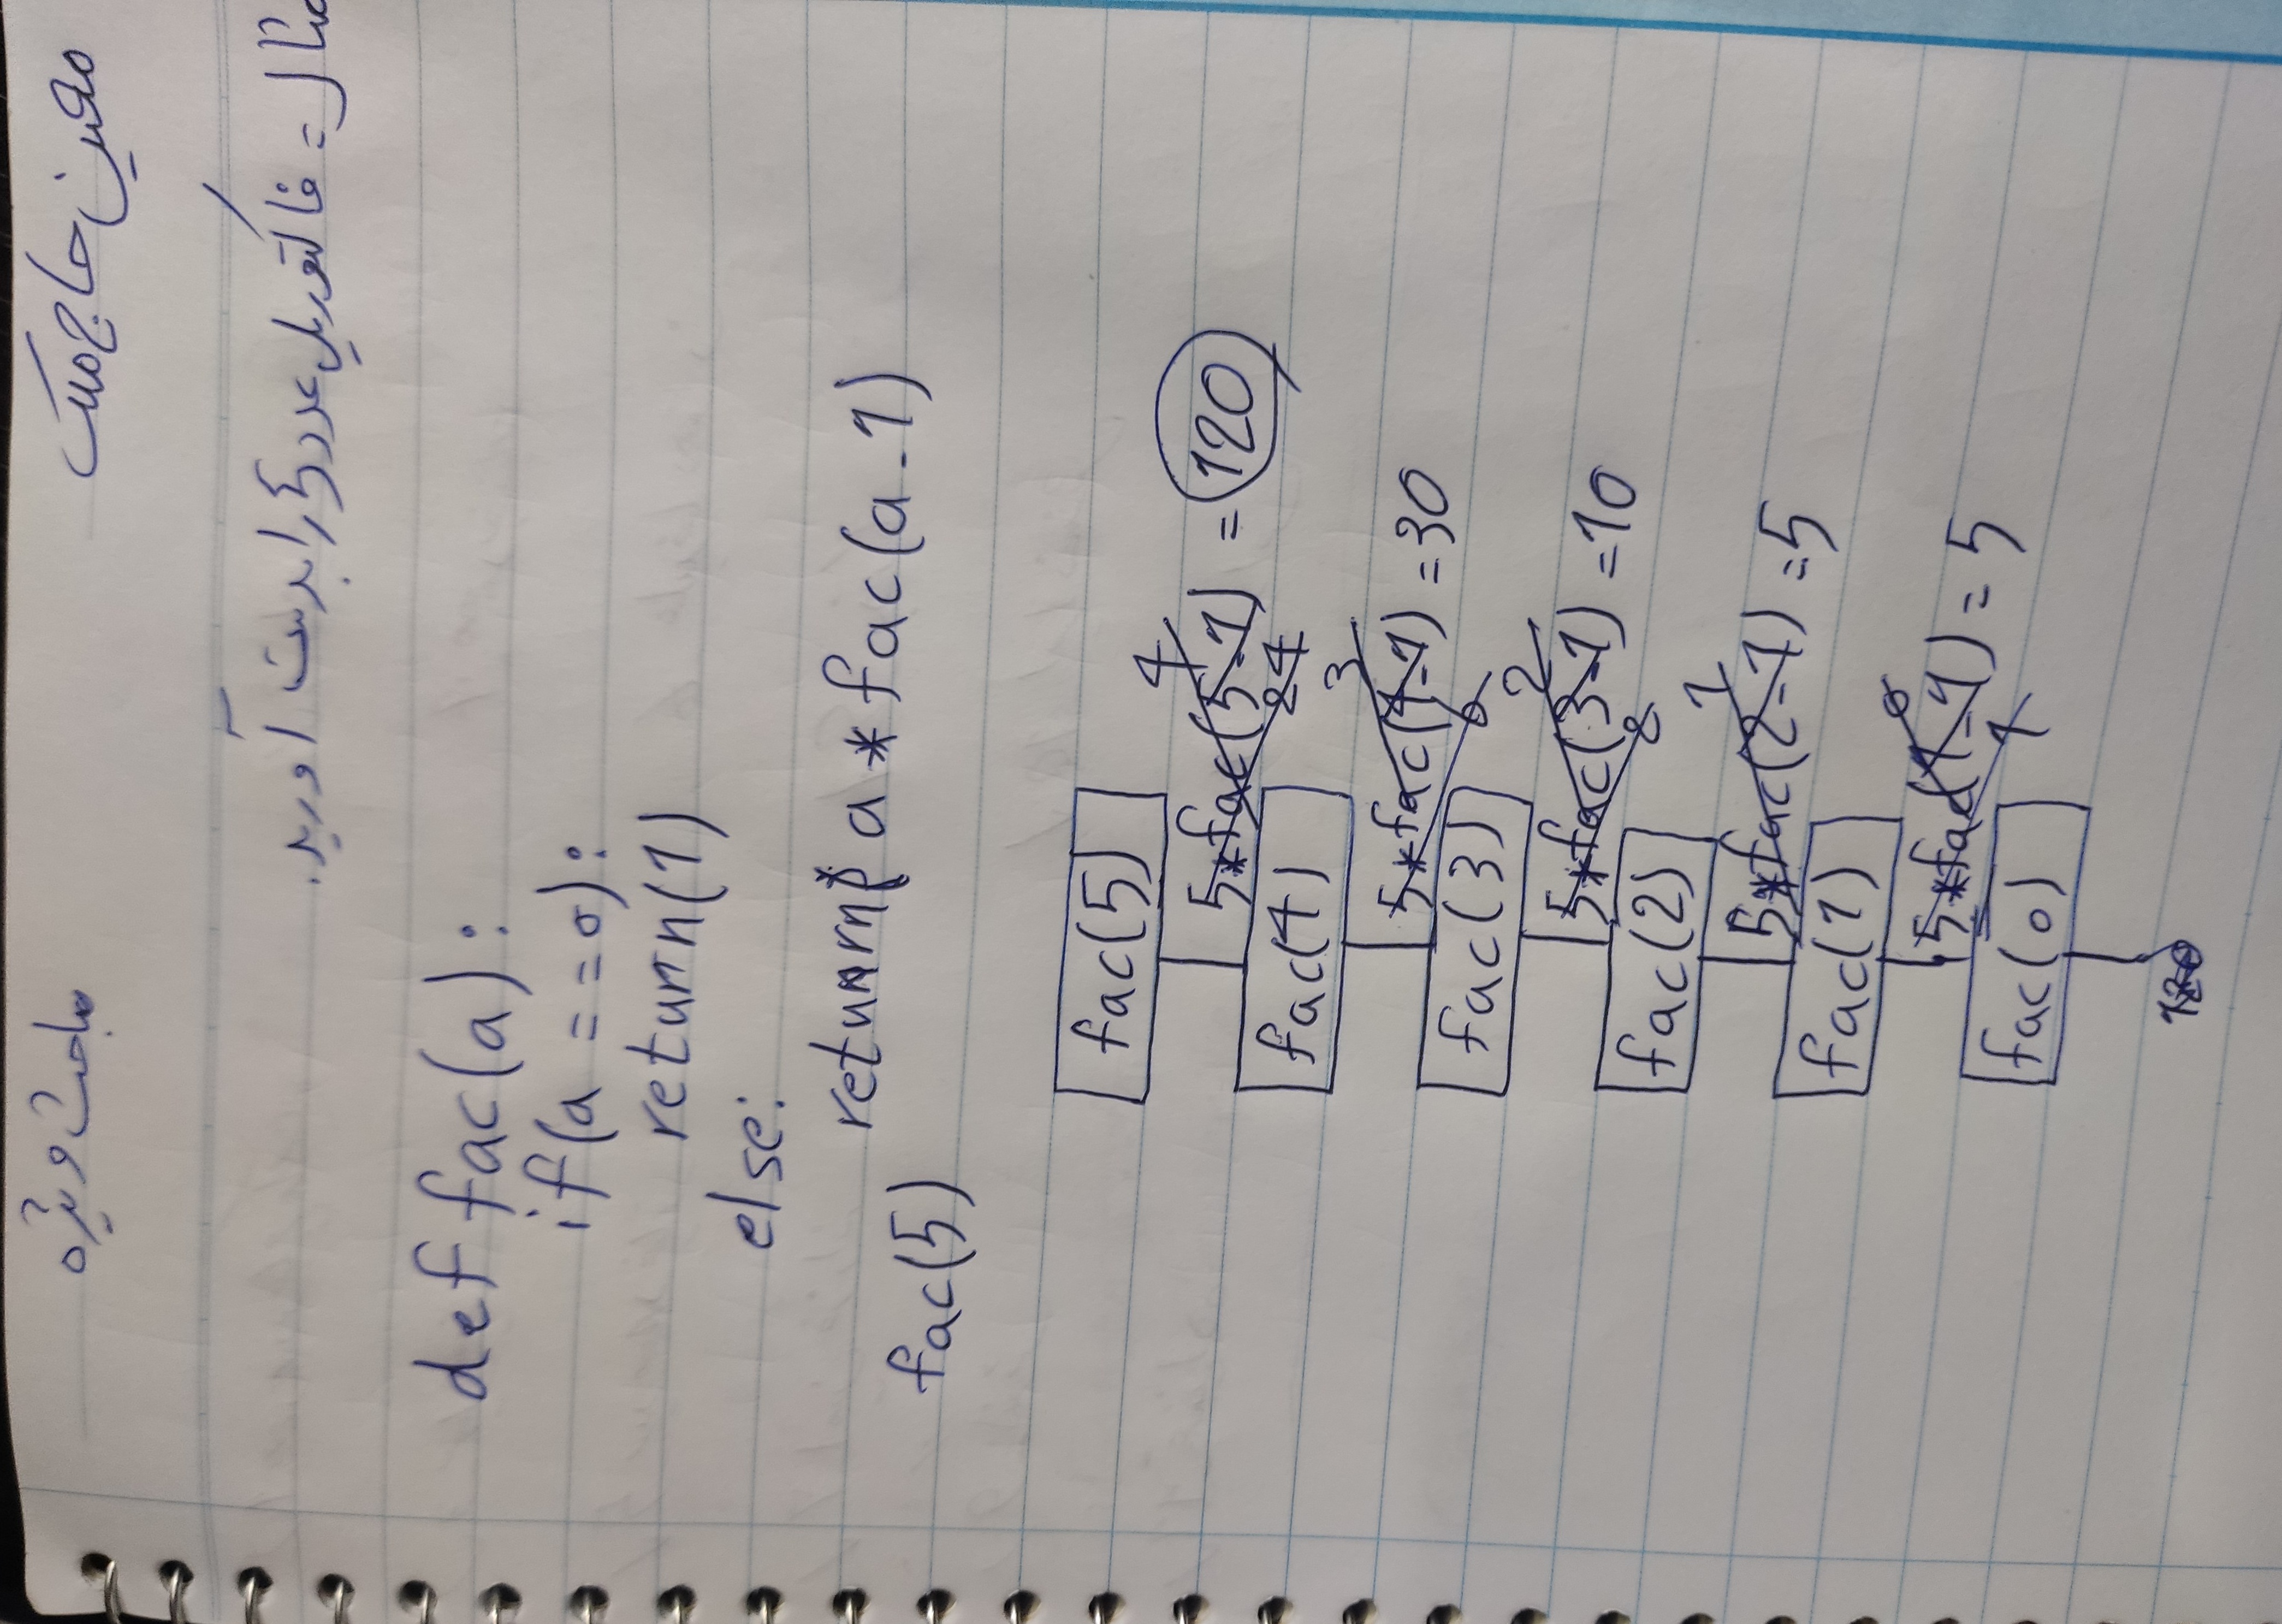 معین حاج ملک
مباحث ویژه
مثال = فاکتوریل عدد 5 را بدست آورید.
def fac(a):
if(a == 0):
return(1)
else:
return a * fac(a-1)
fac(5)
fac(5)
4
5*fac(5-1) = 120
24
fac(4)
3
5*fac(4-1) = 30
6
fac(3)
2
5*fac(3-1) = 10
2
fac(2)
1
5*fac(2-1) = 5
fac(1)
0
5*fac(1-1) = 5
1
fac(0)